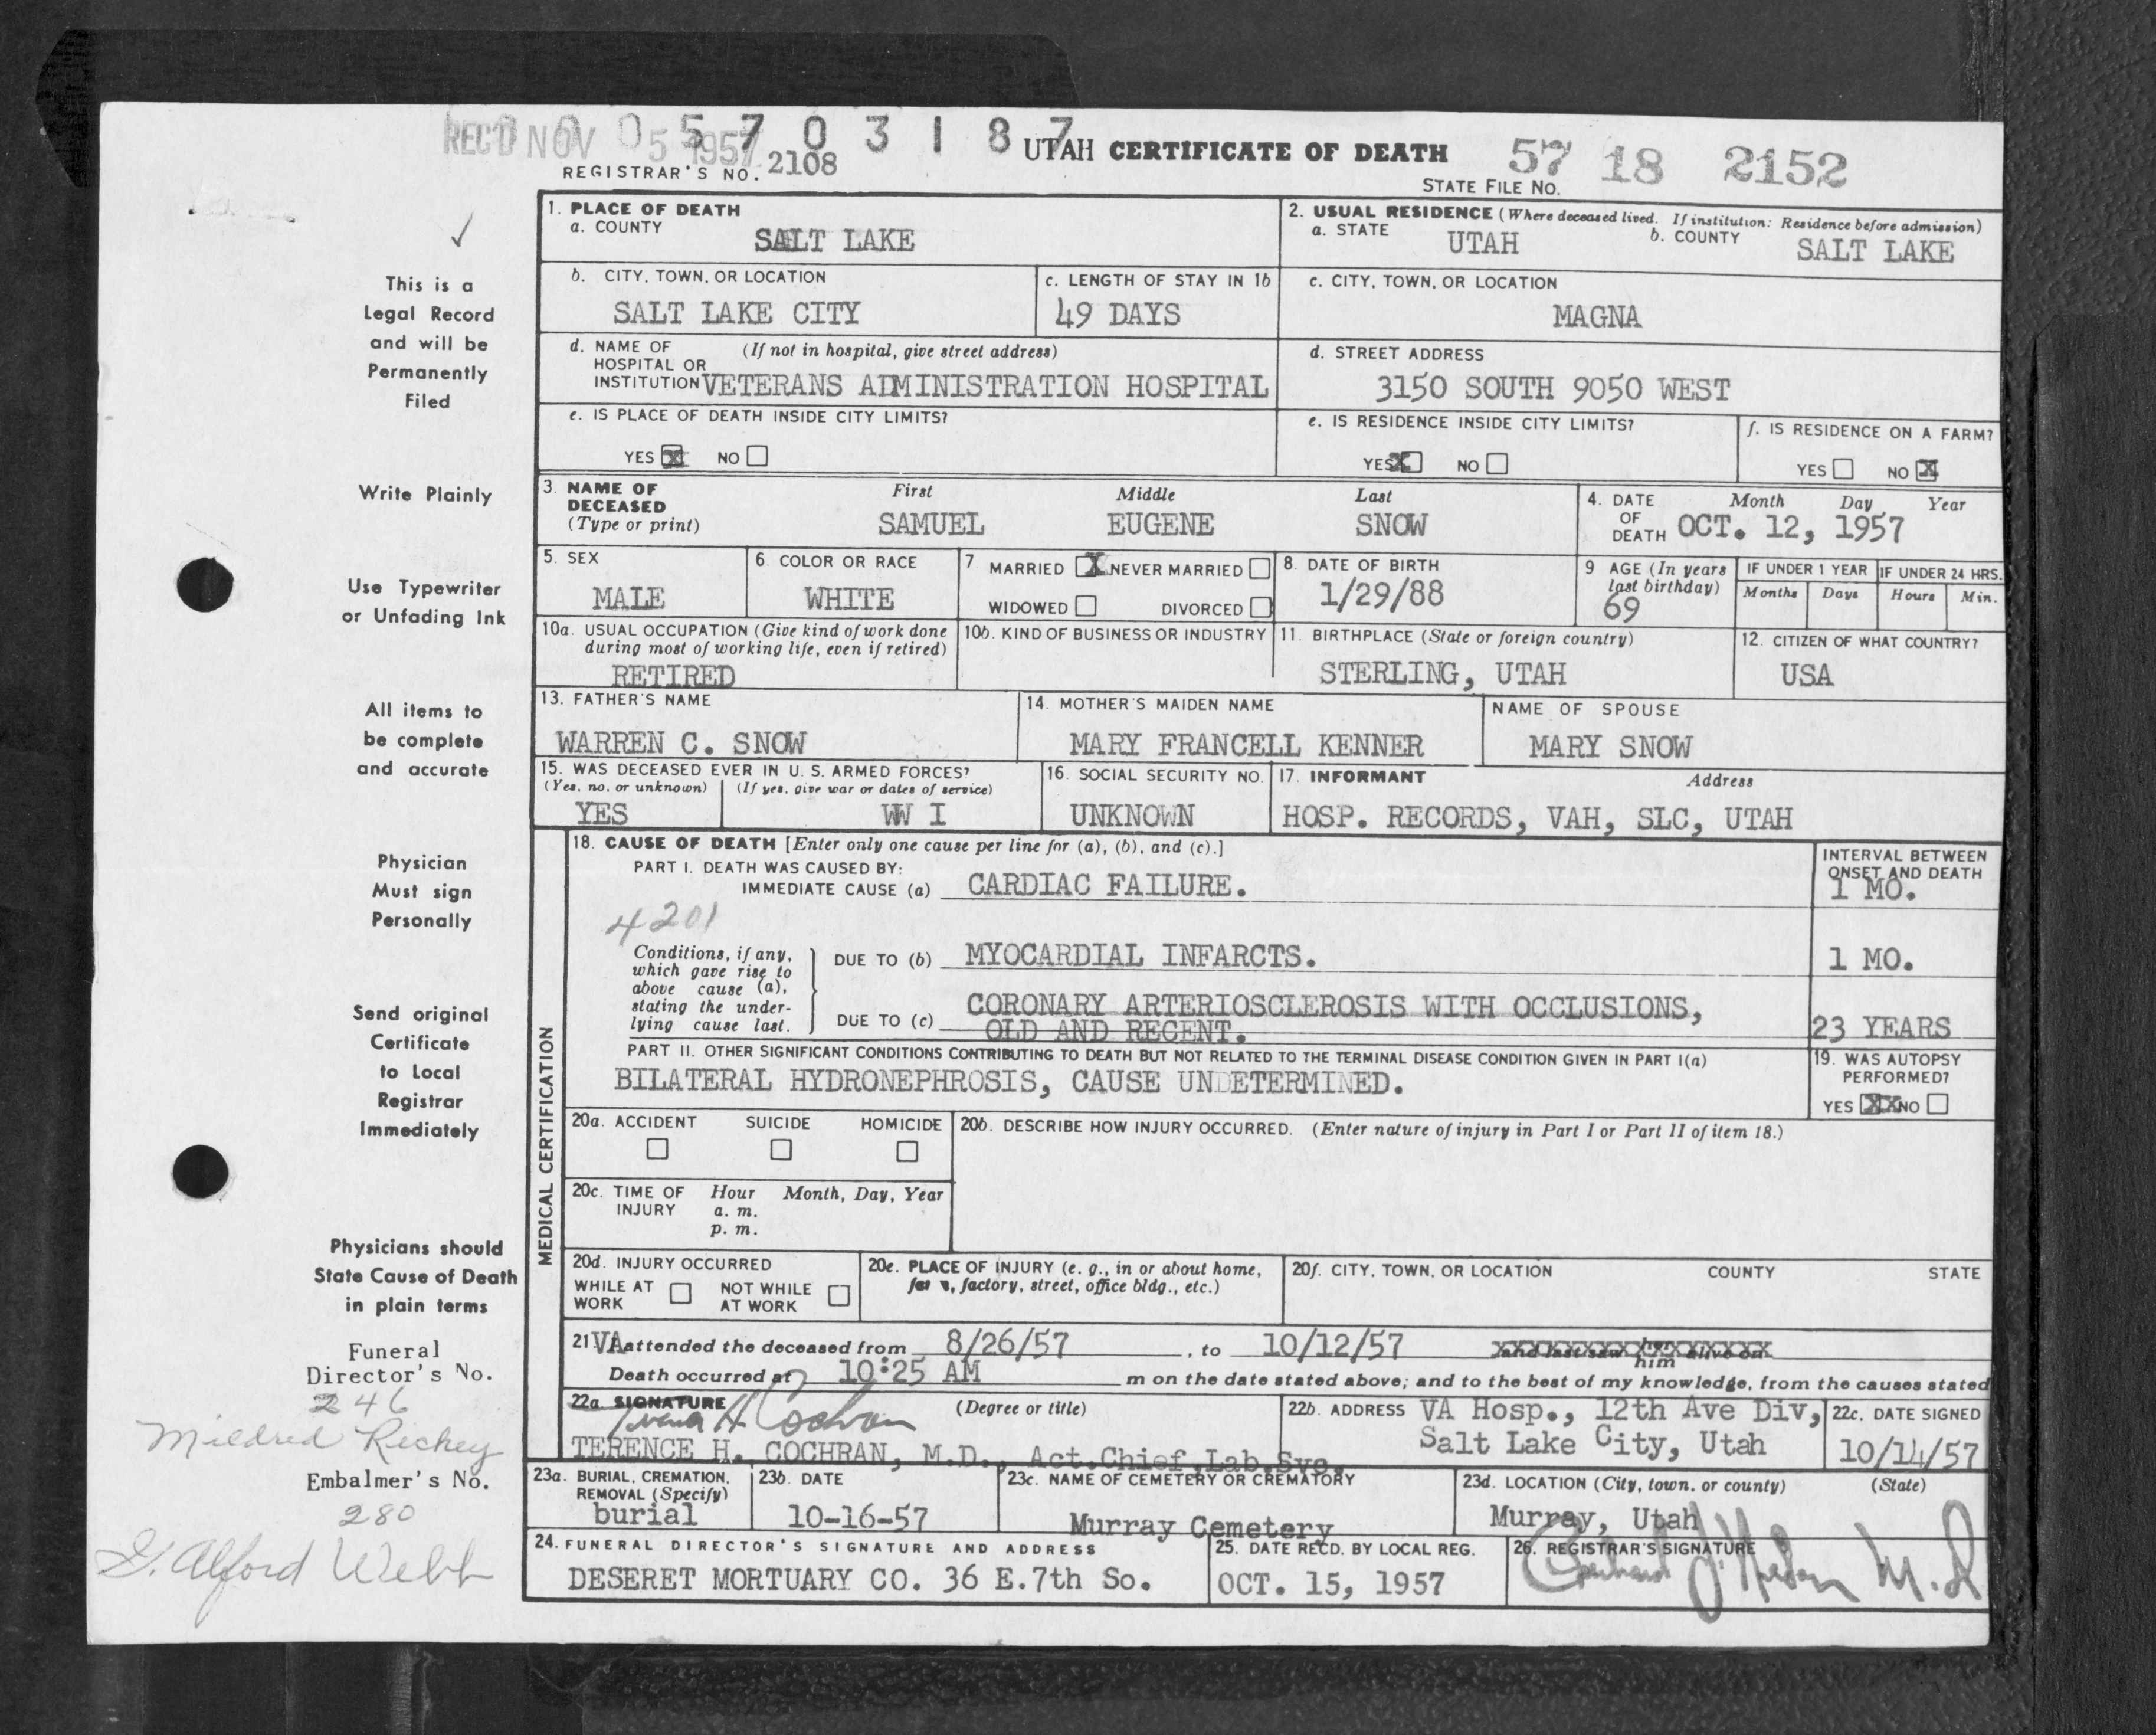 REC'D NOV 05 1957
0 0 5 7 0 3 1 8 7
UTAH CERTIFICATE OF DEATH
57 18 2152
REGISTRAR'S NO. 2108
STATE FILE NO.
This is a
Legal Record
and will be
Permanently
Filed
Write Plainly
Use Typewriter
or Unfading Ink
All items to
be complete
and accurate
Physician
Must sign
Personally
Send original
Certificate
to Local
Registrar
Immediately
Physicians should
State Cause of Death
in plain terms
Funeral
Director's No.
246
Mildred Richey
Embalmer's No.
280
Alford Webb
1. PLACE OF DEATH
a. COUNTY
SALT LAKE
2. USUAL RESIDENCE (Where deceased lived. If institution: Residence before admission)
a. STATE UTAH b. COUNTY SALT LAKE
b. CITY, TOWN, OR LOCATION
SALT LAKE CITY
c. LENGTH OF STAY IN 1b
49 DAYS
c. CITY, TOWN, OR LOCATION
MAGNA
d. NAME OF (If not in hospital, give street address)
HOSPITAL OR
INSTITUTION VETERANS ADMINISTRATION HOSPITAL
d. STREET ADDRESS
3150 SOUTH 9050 WEST
e. IS PLACE OF DEATH INSIDE CITY LIMITS?
YES X NO
e. IS RESIDENCE INSIDE CITY LIMITS?
YES X NO
f. IS RESIDENCE ON A FARM?
YES NO X
3. NAME OF First Middle Last
DECEASED
(Type or print) SAMUEL EUGENE SNOW
4. DATE Month Day Year
OF
DEATH OCT. 12, 1957
5. SEX
MALE
6. COLOR OR RACE
WHITE
7 MARRIED X NEVER MARRIED
WIDOWED DIVORCED
8. DATE OF BIRTH
1/29/88
9 AGE (In years
last birthday)
69
IF UNDER 1 YEAR
Months Days
IF UNDER 24 HRS.
Hours Min.
10a. USUAL OCCUPATION (Give kind of work done
during most of working life, even if retired)
RETIRED
10b. KIND OF BUSINESS OR INDUSTRY
11. BIRTHPLACE (State or foreign country)
STERLING, UTAH
12. CITIZEN OF WHAT COUNTRY?
USA
13. FATHER'S NAME
WARREN C. SNOW
14. MOTHER'S MAIDEN NAME
MARY FRANCELL KENNER
NAME OF SPOUSE
MARY SNOW
15. WAS DECEASED EVER IN U. S. ARMED FORCES?
(Yes, no, or unknown) (If yes, give war or dates of service)
YES WW I
16. SOCIAL SECURITY NO.
UNKNOWN
17. INFORMANT Address
HOSP. RECORDS, VAH, SLC, UTAH
MEDICAL CERTIFICATION
18. CAUSE OF DEATH [Enter only one cause per line for (a), (b), and (c).]
PART I. DEATH WAS CAUSED BY:
IMMEDIATE CAUSE (a) CARDIAC FAILURE.
INTERVAL BETWEEN
ONSET AND DEATH
1 MO.
4201
Conditions, if any,
which gave rise to
above cause (a),
stating the under-
lying cause last.
DUE TO (b) MYOCARDIAL INFARCTS.
1 MO.
DUE TO (c) CORONARY ARTERIOSCLEROSIS WITH OCCLUSIONS,
OLD AND RECENT.
23 YEARS
PART II. OTHER SIGNIFICANT CONDITIONS CONTRIBUTING TO DEATH BUT NOT RELATED TO THE TERMINAL DISEASE CONDITION GIVEN IN PART I(a)
BILATERAL HYDRONEPHROSIS, CAUSE UNDETERMINED.
19. WAS AUTOPSY
PERFORMED?
YES XX NO
20a. ACCIDENT SUICIDE HOMICIDE
20b. DESCRIBE HOW INJURY OCCURRED. (Enter nature of injury in Part I or Part II of item 18.)
20c. TIME OF Hour Month, Day, Year
INJURY a. m.
p. m.
20d. INJURY OCCURRED
WHILE AT NOT WHILE
WORK AT WORK
20e. PLACE OF INJURY (e. g., in or about home,
factory, street, office bldg., etc.)
20f. CITY, TOWN, OR LOCATION COUNTY STATE
21 VA attended the deceased from 8/26/57, to 10/12/57 and last saw her him alive on
Death occurred at 10:25 AM m on the date stated above; and to the best of my knowledge, from the causes stated
22a. SIGNATURE (Degree or title)
Terence H Cochran
TERENCE H. COCHRAN, M.D., Act.Chief,Lab.Svc.
22b. ADDRESS VA Hosp., 12th Ave Div,
Salt Lake City, Utah
22c. DATE SIGNED
10/14/57
23a. BURIAL, CREMATION,
REMOVAL (Specify)
burial
23b. DATE
10-16-57
23c. NAME OF CEMETERY OR CREMATORY
Murray Cemetery
23d. LOCATION (City, town, or county) (State)
Murray, Utah
24. FUNERAL DIRECTOR'S SIGNATURE AND ADDRESS
DESERET MORTUARY CO. 36 E.7th So.
25. DATE RECD. BY LOCAL REG.
OCT. 15, 1957
26. REGISTRAR'S SIGNATURE
M.D